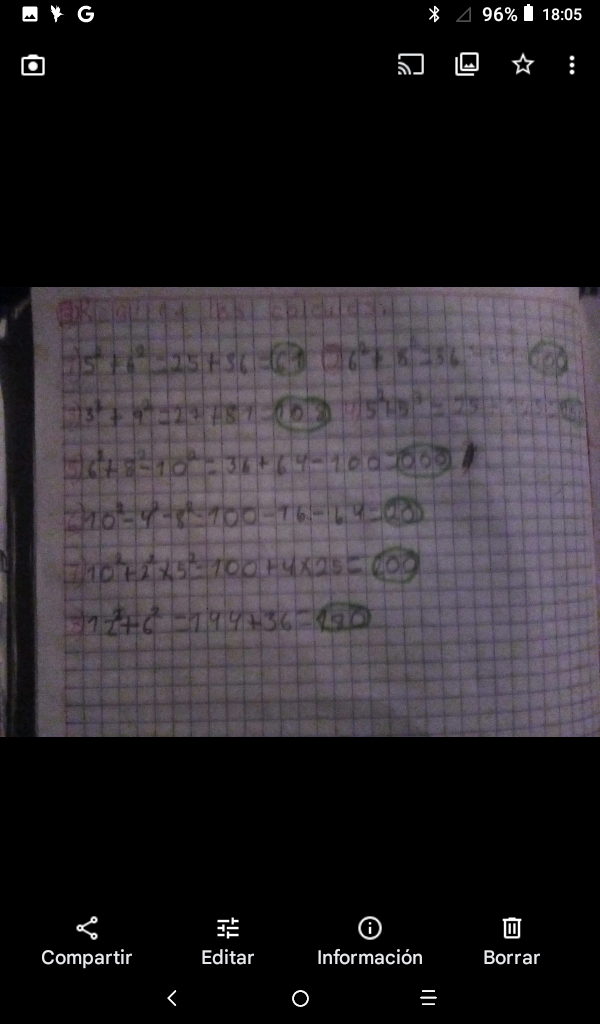 96% 18:05
5²+6²=25+36=61 6²+8²=36
3³+9²=27+81=108 5²+5³=25+125=
6²+8²-10²=36+64-100=000
10²-4²-8²=100-16-64=20
10²+2²x5²=100+4x25=
12²+6²=144+36=180
Compartir Editar Información Borrar